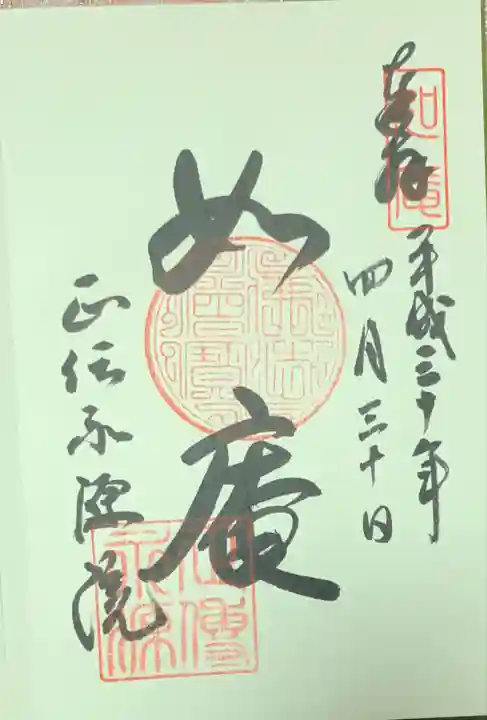 奉拝
平成三十年
四月三十日
如庵
正伝永源院
如庵